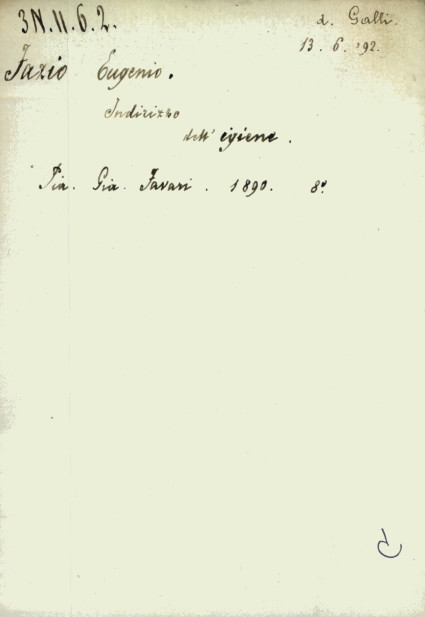 3N.11.6.2.
d. Galli.
13. 6. '92.
Fazio Eugenio.
Indirizzo
dell' igiene.
Già. Favari. 1890. 8º